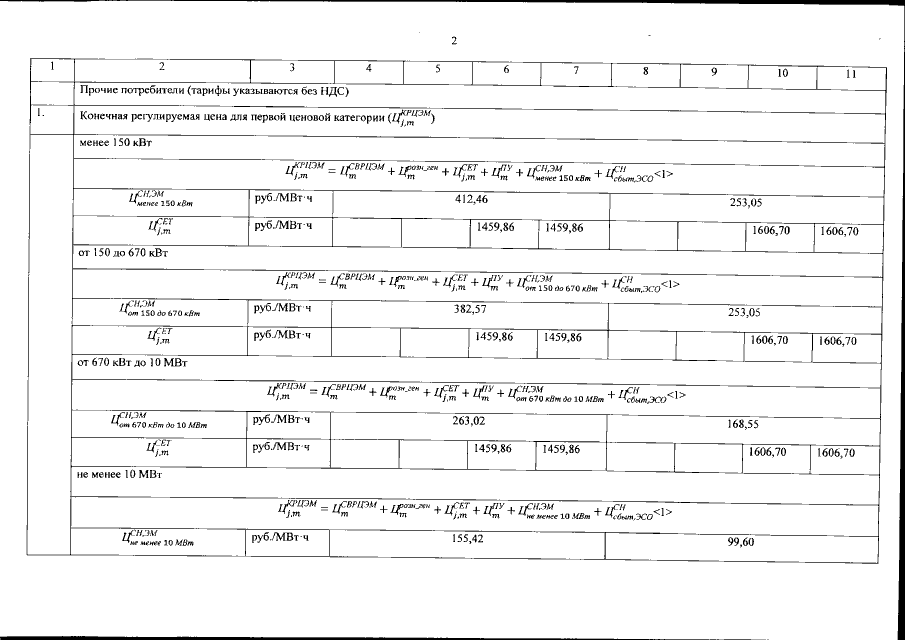 2
1 2 3 4 5 6 7 8 9 10 11
Прочие потребители (тарифы указываются без НДС)
1. Конечная регулируемая цена для первой ценовой категории (Ц_{j,m}^{КРЦЭМ})
менее 150 кВт
Ц_{j,m}^{КРЦЭМ} = Ц_m^{СВРЦЭМ} + Ц_m^{розн_ген} + Ц_{j,m}^{СЕТ} + Ц_m^{ПУ} + Ц_{менее 150 кВт}^{СН,ЭМ} + Ц_{сбыт,ЭСО}^{СН}<1>
Ц_{менее 150 кВт}^{СН,ЭМ} руб./МВт·ч 412,46 253,05
Ц_{j,m}^{СЕТ} руб./МВт·ч 1459,86 1459,86 1606,70 1606,70
от 150 до 670 кВт
Ц_{j,m}^{КРЦЭМ} = Ц_m^{СВРЦЭМ} + Ц_m^{розн_ген} + Ц_{j,m}^{СЕТ} + Ц_m^{ПУ} + Ц_{от 150 до 670 кВт}^{СН,ЭМ} + Ц_{сбыт,ЭСО}^{СН}<1>
Ц_{от 150 до 670 кВт}^{СН,ЭМ} руб./МВт·ч 382,57 253,05
Ц_{j,m}^{СЕТ} руб./МВт·ч 1459,86 1459,86 1606,70 1606,70
от 670 кВт до 10 МВт
Ц_{j,m}^{КРЦЭМ} = Ц_m^{СВРЦЭМ} + Ц_m^{розн_ген} + Ц_{j,m}^{СЕТ} + Ц_m^{ПУ} + Ц_{от 670 кВт до 10 МВт}^{СН,ЭМ} + Ц_{сбыт,ЭСО}^{СН}<1>
Ц_{от 670 кВт до 10 МВт}^{СН,ЭМ} руб./МВт·ч 263,02 168,55
Ц_{j,m}^{СЕТ} руб./МВт·ч 1459,86 1459,86 1606,70 1606,70
не менее 10 МВт
Ц_{j,m}^{КРЦЭМ} = Ц_m^{СВРЦЭМ} + Ц_m^{розн_ген} + Ц_{j,m}^{СЕТ} + Ц_m^{ПУ} + Ц_{не менее 10 МВт}^{СН,ЭМ} + Ц_{сбыт,ЭСО}^{СН}<1>
Ц_{не менее 10 МВт}^{СН,ЭМ} руб./МВт·ч 155,42 99,60